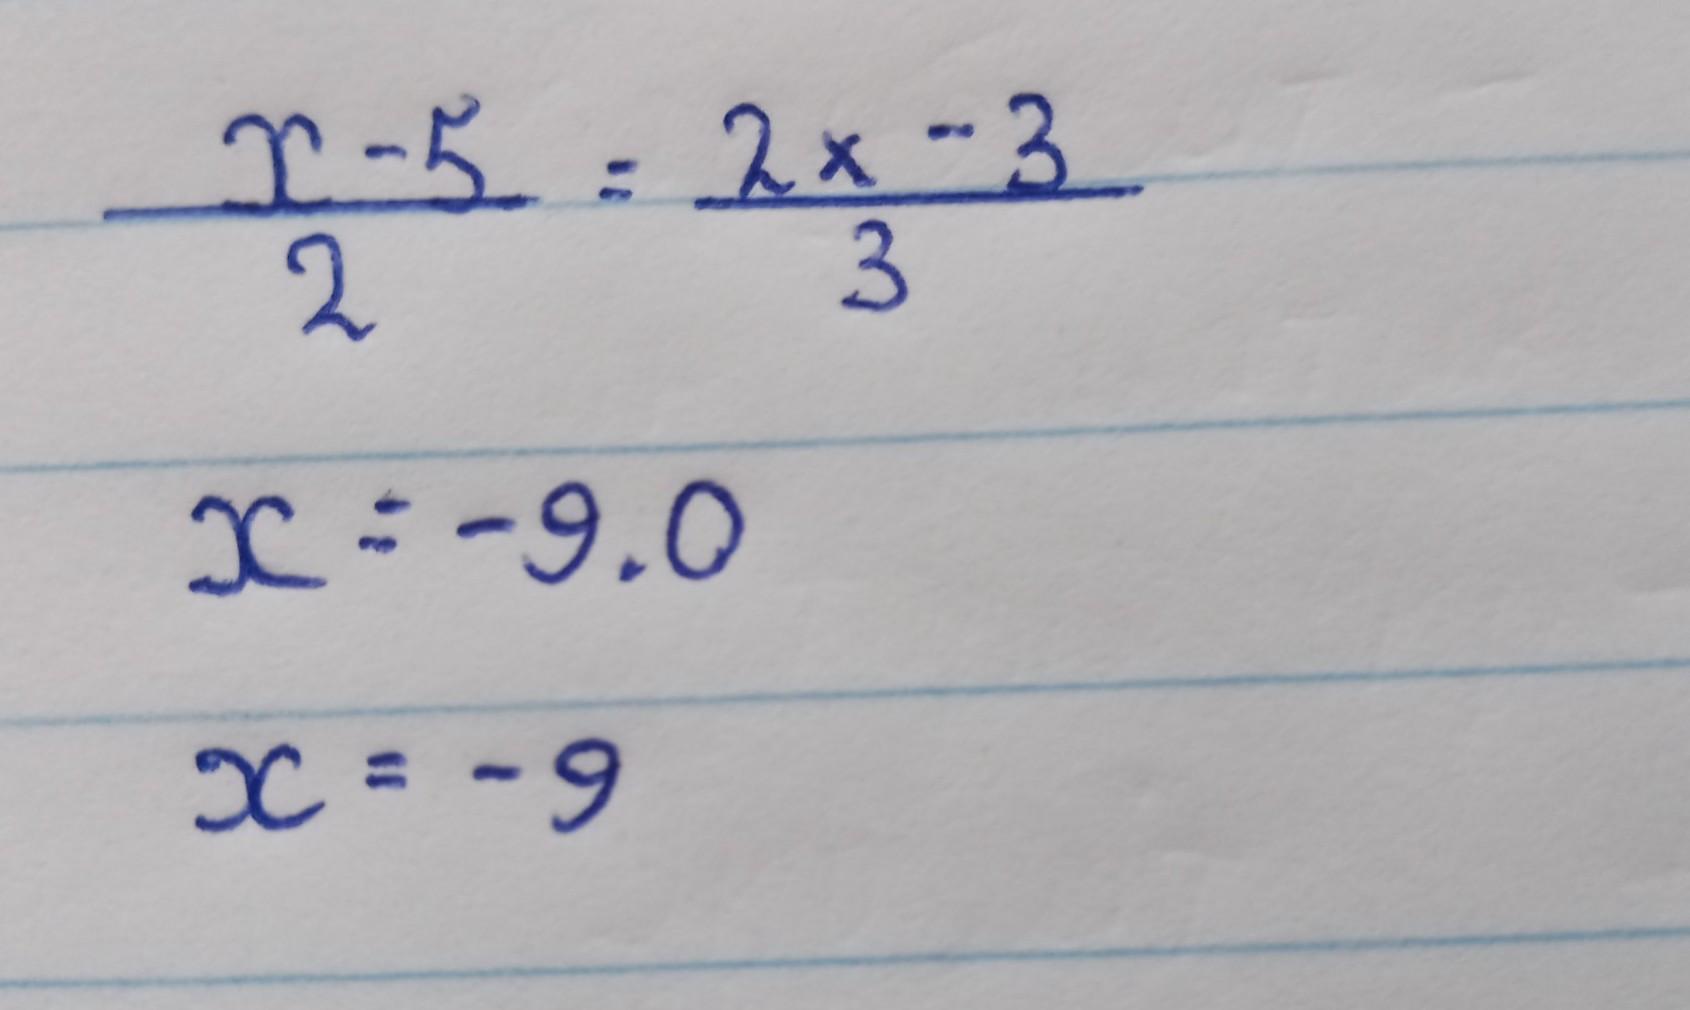 x - 5 / 2 = 2x - 3 / 3
x = -9.0
x = -9